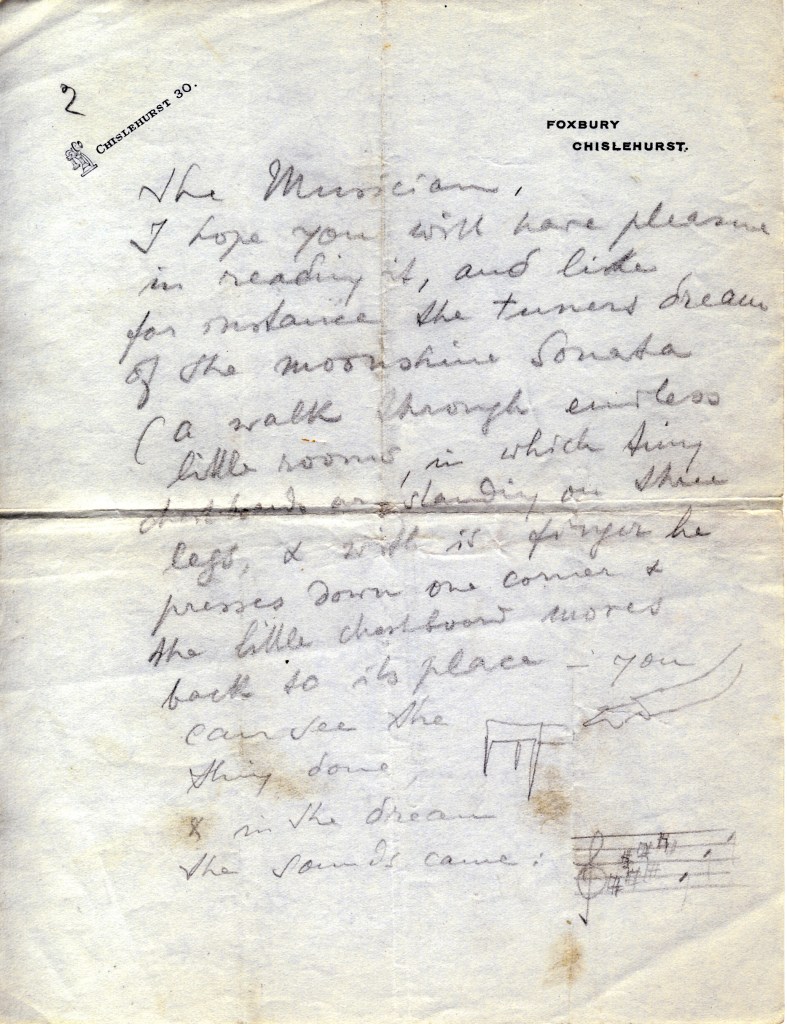 2
CHISLEHURST 30.
FOXBURY
CHISLEHURST.
The Musician,
I hope you will have pleasure
in reading it, and like
for instance the tuners dream
of the moonshine Sonata
(a walk through endless
little rooms, in which tiny
chestboards are standing on three
legs, & with is finger he
presses down one corner &
the little chestboard moves
back to its place – you
can see the
thing done,
& in the dream
the sounds came: